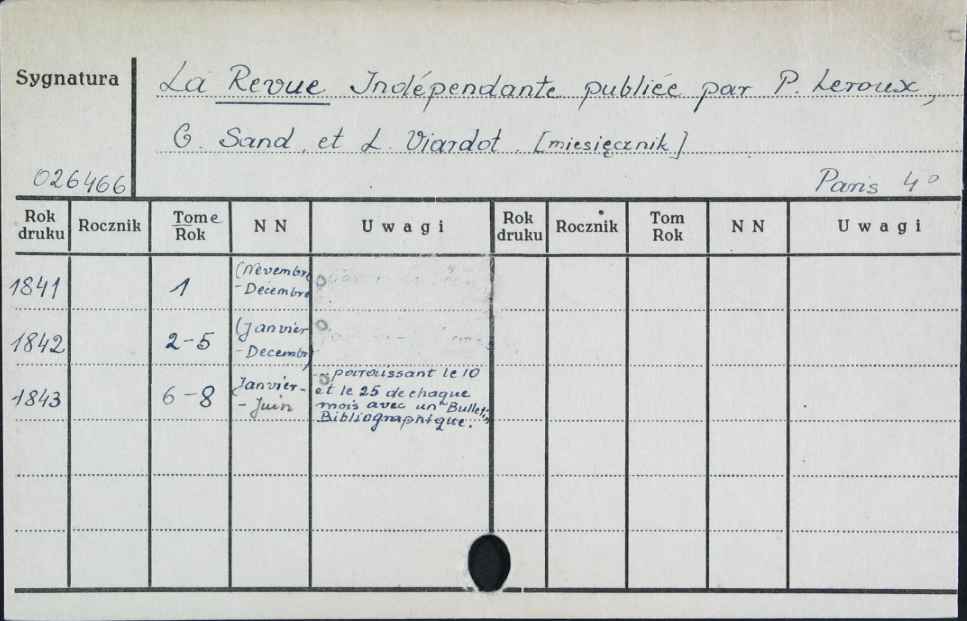 Sygnatura
La Revue Indépendante publiée par P. Leroux,
G. Sand et L. Viardot. [miesięcznik]
026466
Paris 4°
Rok druku Rocznik Tome Rok NN Uwagi Rok druku Rocznik Tom Rok NN Uwagi
1841 1 (Novembre
-Décembre
1842 2-5 (Janvier
-Decembre)
1843 6-8 Janvier-
-Juin
paraissant le 10
et le 25 de chaque
mois avec un "Bulletin
Bibliographique.